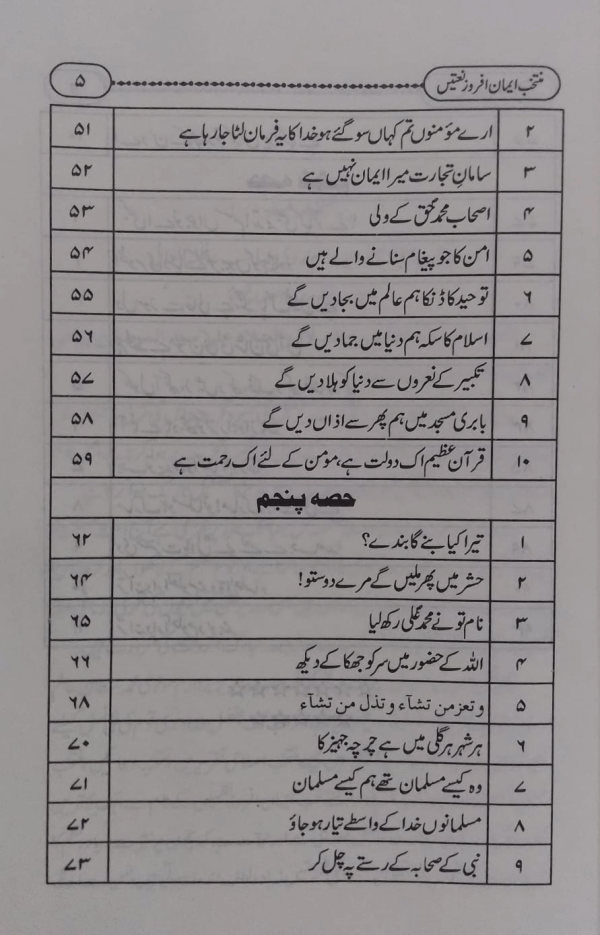 منتخب ایمان افروز نعتیں ۵
۲ ارے مؤمنوں تم کہاں سو گئے ہو خدا کا یہ فرمان لٹا جا رہا ہے ۵۱
۳ سامانِ تجارت میرا ایمان نہیں ہے ۵۲
۴ اصحاب محمد حق کے ولی ۵۳
۵ امن کا جو پیغام سنانے والے ہیں ۵۴
۶ توحید کا ڈنکا ہم عالم میں بجا دیں گے ۵۵
۷ اسلام کا سکہ ہم دنیا میں جما دیں گے ۵۶
۸ تکبیر کے نعروں سے دنیا کو ہلا دیں گے ۵۷
۹ بابری مسجد میں ہم پھر سے اذاں دیں گے ۵۸
۱۰ قرآن عظیم اک دولت ہے، مؤمن کے لئے اک رحمت ہے ۵۹
حصہ پنجم
۱ تیرا کیا بنے گا بندے؟ ۶۲
۲ حشر میں پھر ملیں گے مرے دوستو! ۶۴
۳ نام تو نے محمد علی رکھ لیا ۶۵
۴ اللہ کے حضور میں سر کو جھکا کے دیکھ ۶۶
۵ وتعز من تشآء وتذل من تشآء ۶۸
۶ ہر شہر ہر گلی میں ہے چرچہ جہیز کا ۷۰
۷ وہ کیسے مسلمان تھے ہم کیسے مسلمان ۷۱
۸ مسلمانوں خدا کے واسطے تیار ہو جاؤ ۷۲
۹ نبی کے صحابہ کے رستے پہ چل کر ۷۳